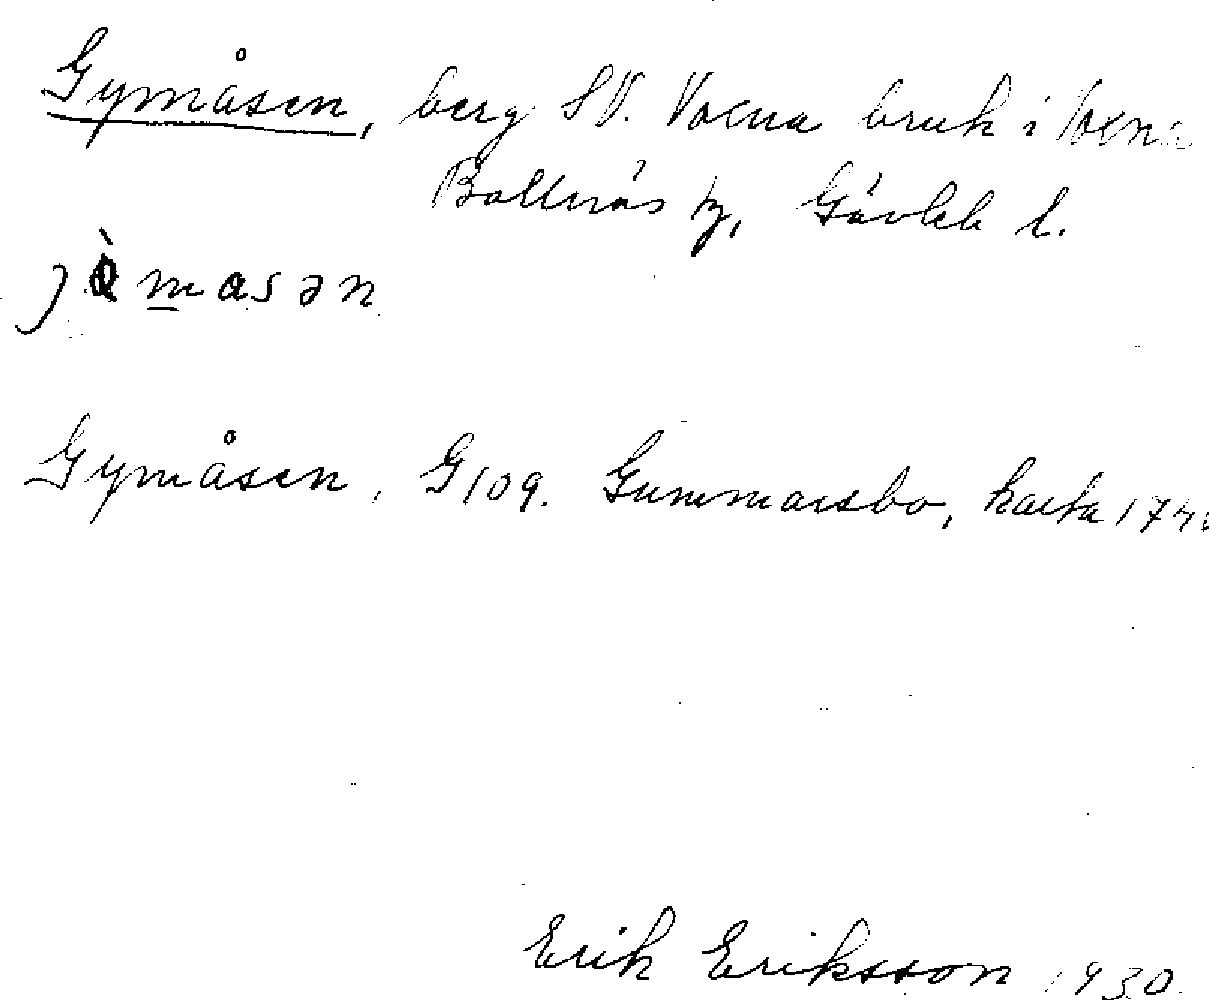 Gymåsen, berg SV. Voxna bruk i Voxna
Bollnäs tg, Gävleb l.
Gymåsen, G109. Gummarsbo, karta 174
Erik Eriksson 1930.